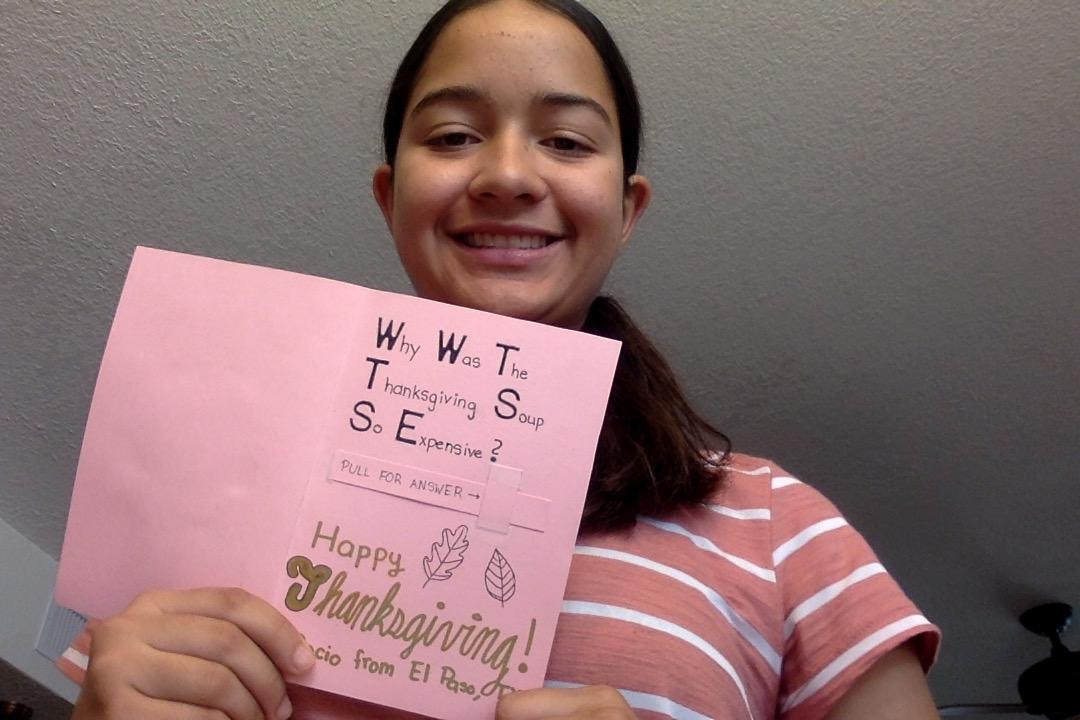 Why Was The
Thanksgiving Soup
So Expensive?
PULL FOR ANSWER →
Happy
Thanksgiving!
from El Paso,